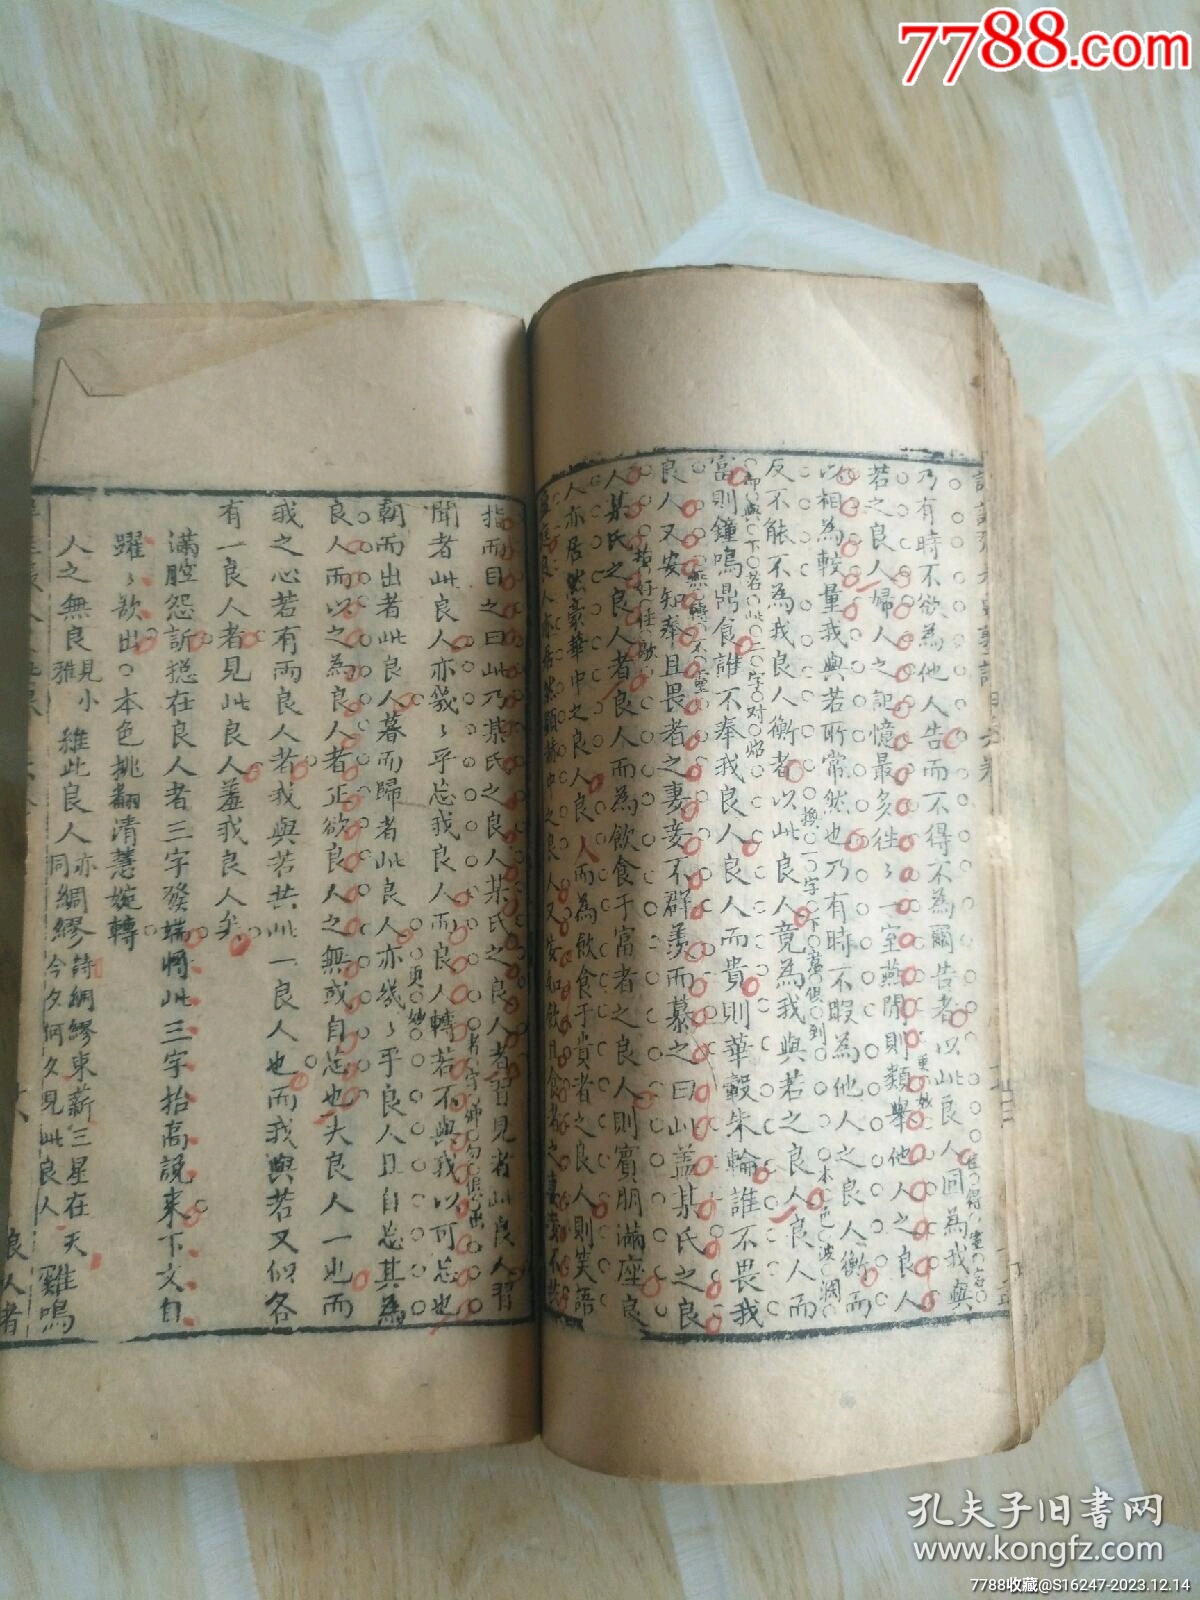 7788.com
乃有時不欲為他人告而不得不為爾告者以此良人回為我與
若之良人婦人之記憶最多往〻一室燕閒則類舉他人之良人
以相為較量我與若所常然也乃有時不暇為他人之良人衡而
反不能不為我良人衡者以此良人竟為我與若之良人良人而
富則鐘鳴鼎食誰不奉我良人良人而貴則華轂朱輪誰不畏我
良人又安知奉且畏者之妻妾不群羨而慕之曰此盖某氏之良
人某氏之良人者良人而為飲食于富者之良人則賓朋滿座良
人亦居然豪華中之良人良人而為飲食于貴者之良人則笑語
指而目之曰此乃某氏之良人某氏之良人者習見者此良人習
聞者此良人亦幾〻乎忘我良人而良人轉若不與我以可忘也
朝而出者此良人暮而歸者此良人亦幾〻乎良人且自忘其為
良人而以之為良人者正欲良人之無或自忘也夫良人一也而
我之心若有兩良人者我與若共此一良人也而我與若又似各
有一良人者見此良人羞我良人矣
滿腔怨訴總在良人者三字發端將此三字抬高說来下文自
躍〻欲出○本色挑翻清蕙婉轉
人之無良見小雅 維此良人亦同 綢繆詩綢繆東薪三星在天今夕何夕見此良人 雞鳴
良人者
孔夫子旧書网
www.kongfz.com
7788收藏@S16247-2023.12.14